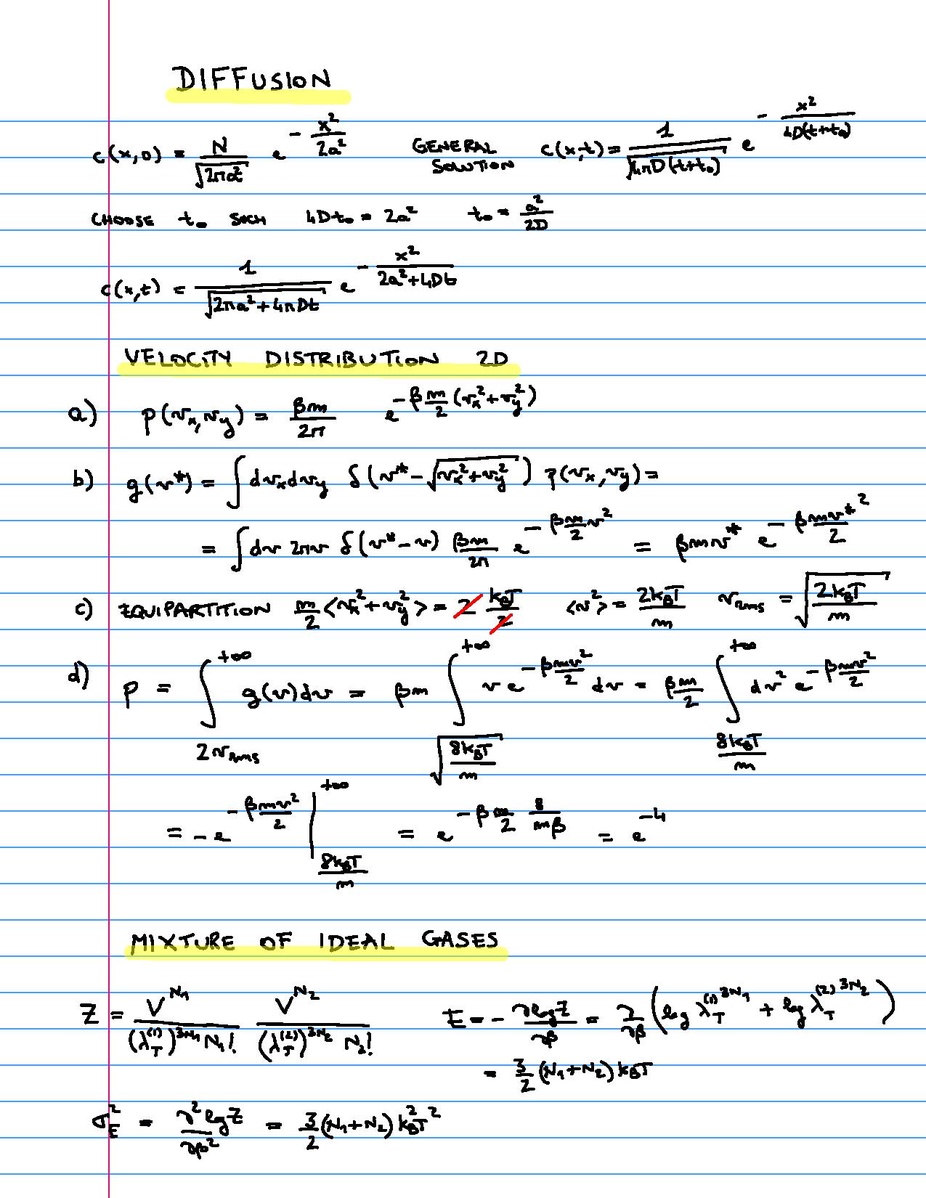 DIFFUSION
c(x,0) = N/√(2πa²) e^(-x²/2a²) GENERAL SOLUTION c(x,t) = 1/√(4πD(t+t₀)) e^(-x²/4D(t+t₀))
CHOOSE t₀ SUCH 4Dt₀ = 2a² t₀ = a²/2D
c(x,t) = 1/√(2πa²+4πDt) e^(-x²/(2a²+4Dt))
VELOCITY DISTRIBUTION 2D
a) p(vx,vy) = βm/2π e^(-β m/2 (vx²+vy²))
b) g(v*) = ∫dvxdvy δ(v*-√(vx²+vy²)) p(vx,vy) =
= ∫dv 2πv δ(v*-v) βm/2π e^(-βm/2 v²) = βmv* e^(-βmv*²/2)
c) EQUIPARTITION m/2 <vx²+vy²> = 2 kBT/2 <v²> = 2kBT/m vRMS = √(2kBT/m)
d) P = ∫_{2vRMS}^{+∞} g(v)dv = βm ∫_{√(8kBT/m)}^{+∞} v e^(-βmv²/2) dv = βm/2 ∫_{8kBT/m}^{+∞} dv² e^(-βmv²/2)
= -e^(-βmv²/2) |_{8kBT/m}^{+∞} = e^(-β m/2 8/mβ) = e^(-4)
MIXTURE OF IDEAL GASES
Z = V^N₁/((λT^(1))^3N₁ N₁!) V^N₂/((λT^(2))^3N₂ N₂!) E = -∂logZ/∂β = ∂/∂β (log λT^(1)3N₁ + log λT^(2)3N₂)
= 3/2 (N₁+N₂) kBT
σE² = ∂²logZ/∂β² = 3/2 (N₁+N₂) kB²T²